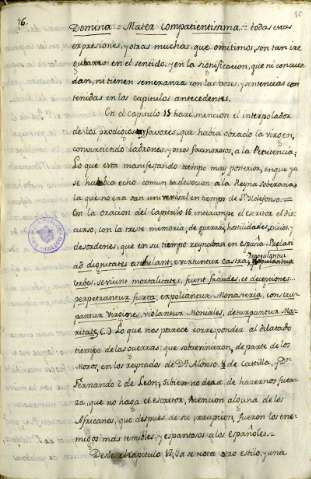 16.
Domina Mater Compatientissima: todas estas
expresiones, y otras muchas que omitimos, son tan
en el sentido, y en la significacion, que ni concuer
dan, ni tienen semejanza con las voces, y sentencias con
tenidas en los capitulos antecedentes.
En el capitulo 15 hace mencion el interpolador
de los prodigios, y favores que había obrado la virgen,
convirtiendo ladrones, y otros facinerosos, a la Penitencia;
Lo que esta manifestando tiempo muy posterior, en que ya
se hubo echo comun la devocion a la Reyna soberana,
la que no era tan universal en tiempo de Sn. Ildefonso.
En la oracion del Capitulo 16 interrumpe el escritor el dis
curso, con la triste memoria, de guerras, hostilidades, vicios, y
desordenes, que en su tiempo reynaban en españa: Prælati
ad dignitates anhelant, extruuntur castra,
turres, veniunt mortalitates, fiunt fraudes, et deceptiones,
perpetrantur furta, expoliantur Monasteria, corrum
puntur Virgines, violantur Moniales, deturpantur Ma
ritatæ. Lo que nos parece corresponder al dilatado
tiempo de las guerras que sobrevinieron, de parte de los
Moros, en los reynados de Dn. Alonso 8 de Castilla, y Dn.
Fernando 2 de Leon; si bien no dexa de hacernos fuer
za, que no haga el escritor, mencion alguna de los
Africanos, que despues de su irrupcion, fueron los ene
migos más temibles, y espantosos a los Españoles.
Desde el capitulo VI, ya se nota otro estilo, y una